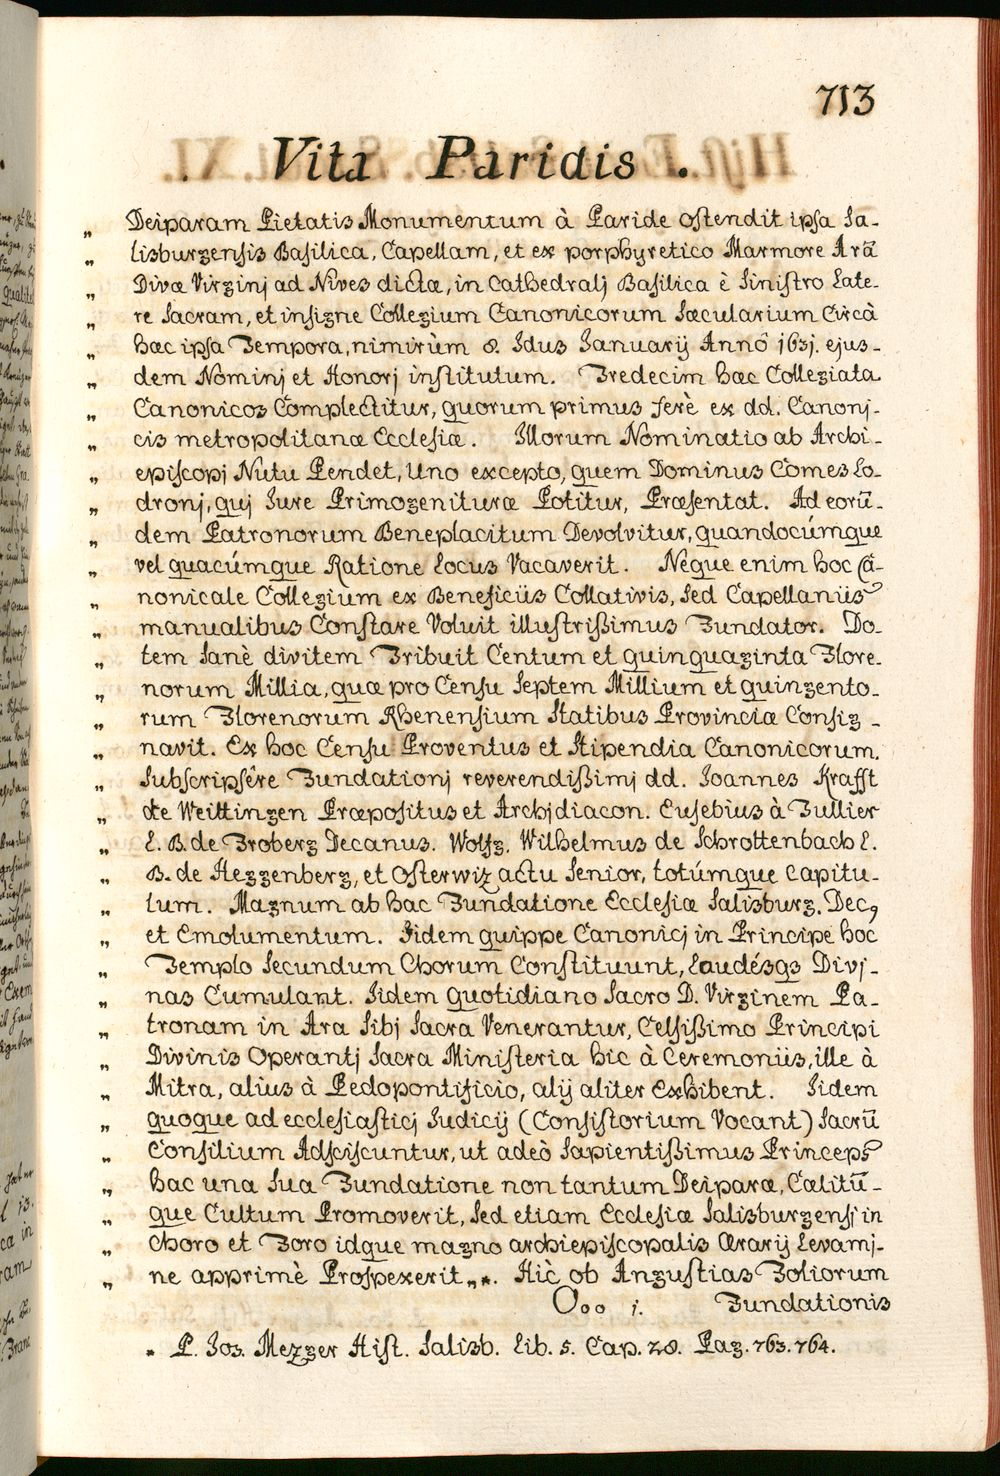 713
Vita Paridis.
„ Deiparam Pietatis Monumentum à Paride ostendit ipsa Sa-
„ lisburgensis Basilica, Capellam, et ex porphyretico Marmore Arā
„ Divæ Virginj ad Nives dictæ, in Cathedralj Basilica è Sinistro Late-
„ re Sacram, et insigne Collegium Canonicorum Sæcularium Circà
„ hæc ipsa Tempora, nimirùm 8. Idus Januarij Annô 1631. ejus-
„ dem Nominj et Honorj institutum. Tredecim hæc Collegiata
„ Canonicos Complectitur, quorum primus ferè ex dd. Canonj-
„ cis metropolitanæ Ecclesiæ. Illorum Nominatio ab Archi-
„ episcopj Nutu Pendet, Uno excepto, quem Dominus Comes Lo-
„ dronj, quj Jure Primogenituræ Potitur, Præsentat. Ad eorū-
„ dem Patronorum Beneplacitum Devolvitur, quandocúmque
„ vel quacúmque Ratione Locus Vacaverit. Neque enim hoc Ca-
„ nonicale Collegium ex Beneficiis Collativis, Sed Capellaniis
„ manualibus Constare Voluit illustrißimus Fundator. Do-
„ tem Sanè divitem Tribuit Centum et quinquaginta Flore-
„ norum Millia, quæ pro Censu Septem Millium et quingento-
„ rum Florenorum Rhenensium Statibus Provinciæ Consig-
„ navit. Ex hoc Censu Proventus et Stipendia Canonicorum.
„ Subscripsêre Fundationj reverendißimj dd. Joannes Krafft
„ de Weittingen Præpositus et Archjdiacon. Eusebius à Fullier
„ L. B. de Froberg Decanus. Wolfg. Wilhelmus de Schrottenbach L.
„ B. de Heggenberg, et Osterwiz actu Senior, totúmque Capitu-
„ lum. Magnum ab hac Fundatione Ecclesiæ Salisburg. Dec9
„ et Emolumentum. Iidem quippe Canonicj in Principe hoc
„ Templo Secundum Chorum Constituunt, Laudésqs Divj-
„ nas Cumulant. Iidem quotidiano Sacro D. Virginem Pa-
„ tronam in Ara Sibj Sacra Venerantur, Celsißimo Principi
„ Divinis Operantj Sacra Ministeria hic à Ceremoniis, ille à
„ Mitra, alius à Pedo pontificio, alij aliter Exhibent. Iidem
„ quoque ad ecclesiasticj Judicij (Consistorium Vocant) Sacrū
„ Consilium Adsciscuntur, ut adeò Sapientißimus Princeps
„ hac una Sua Fundatione non tantum Deiparæ, Cælitū-
„ que Cultum Promoverit, Sed etiam Ecclesiæ Salisburgensj in
„ Choro et Foro idque magno archiepiscopalis Ærarij Levamj-
„ ne apprimè Prospexerit „*. Hìc ob Angustias Foliorum
Ooo 1. Fundationis
* P. Jos. Mezger Hist. Salisb. Lib. 5. Cap. 28. Pag. 763. 764.